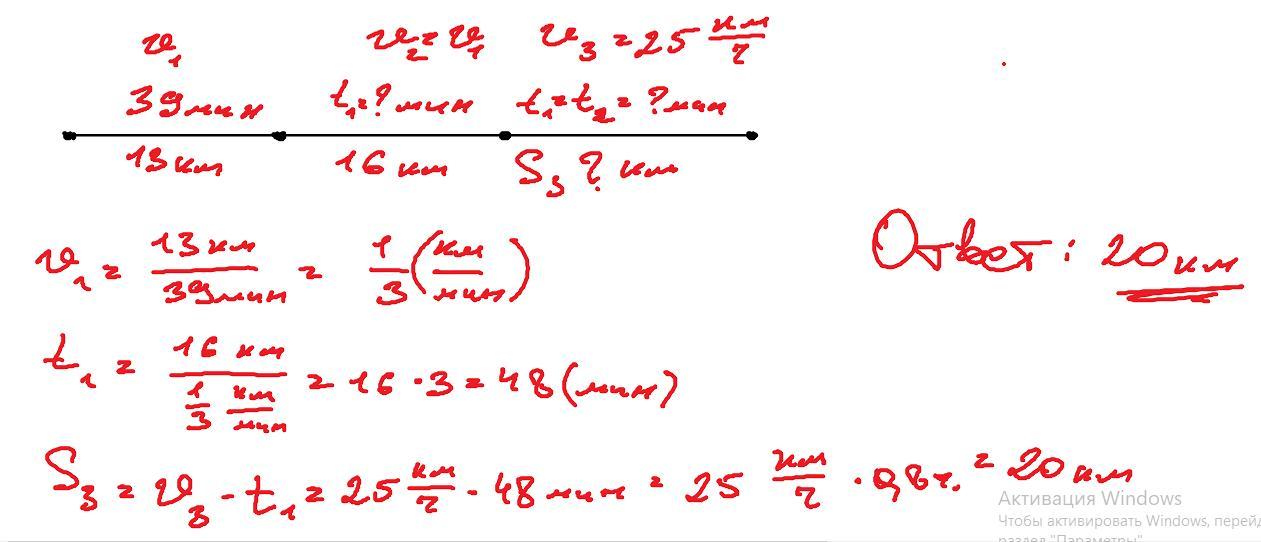 v₁ v₂ = v₁ v₃ = 25 км/ч
39 мин t₁ = ? мин t₁ = t₂ = ? мин
13 км 16 км S₃ ? км
v₁ = 13 км / 39 мин = 1/3 (км/мин)
Ответ: 20 км
t₁ = 16 км / (1/3 км/мин) = 16 · 3 = 48 (мин)
S₃ = v₃ · t₁ = 25 км/ч · 48 мин = 25 км/ч · 0,8 ч. = 20 км
Активация Windows
Чтобы активировать Windows, перейд
раздел "Параметры".